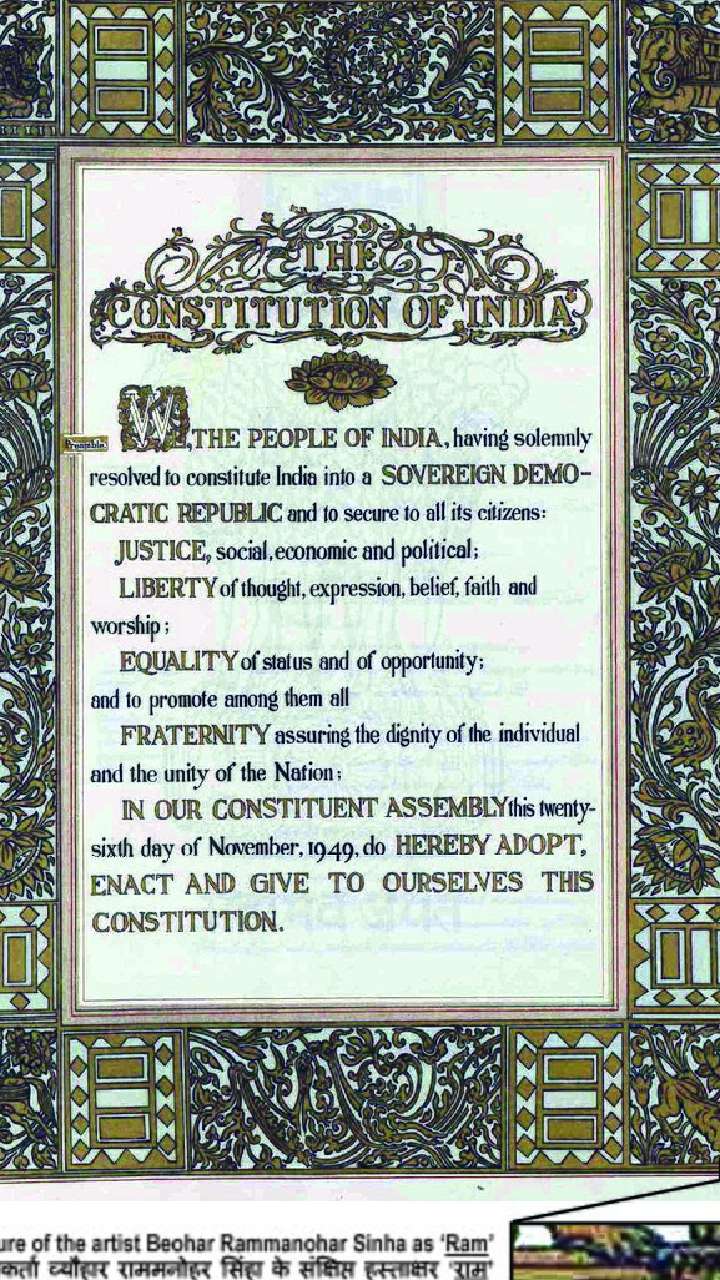 THE
CONSTITUTION OF INDIA
Preamble.
WE, THE PEOPLE OF INDIA, having solemnly
resolved to constitute India into a SOVEREIGN DEMO-
CRATIC REPUBLIC and to secure to all its citizens:
JUSTICE, social, economic and political;
LIBERTY of thought, expression, belief, faith and
worship;
EQUALITY of status and of opportunity;
and to promote among them all
FRATERNITY assuring the dignity of the individual
and the unity of the Nation;
IN OUR CONSTITUENT ASSEMBLY this twenty-
sixth day of November, 1949, do HEREBY ADOPT,
ENACT AND GIVE TO OURSELVES THIS
CONSTITUTION.
ure of the artist Beohar Rammanohar Sinha as ‘Ram’
कर्ता ब्यौहार राममनोहर सिंहा के संक्षिप्त हस्ताक्षर ‘राम’